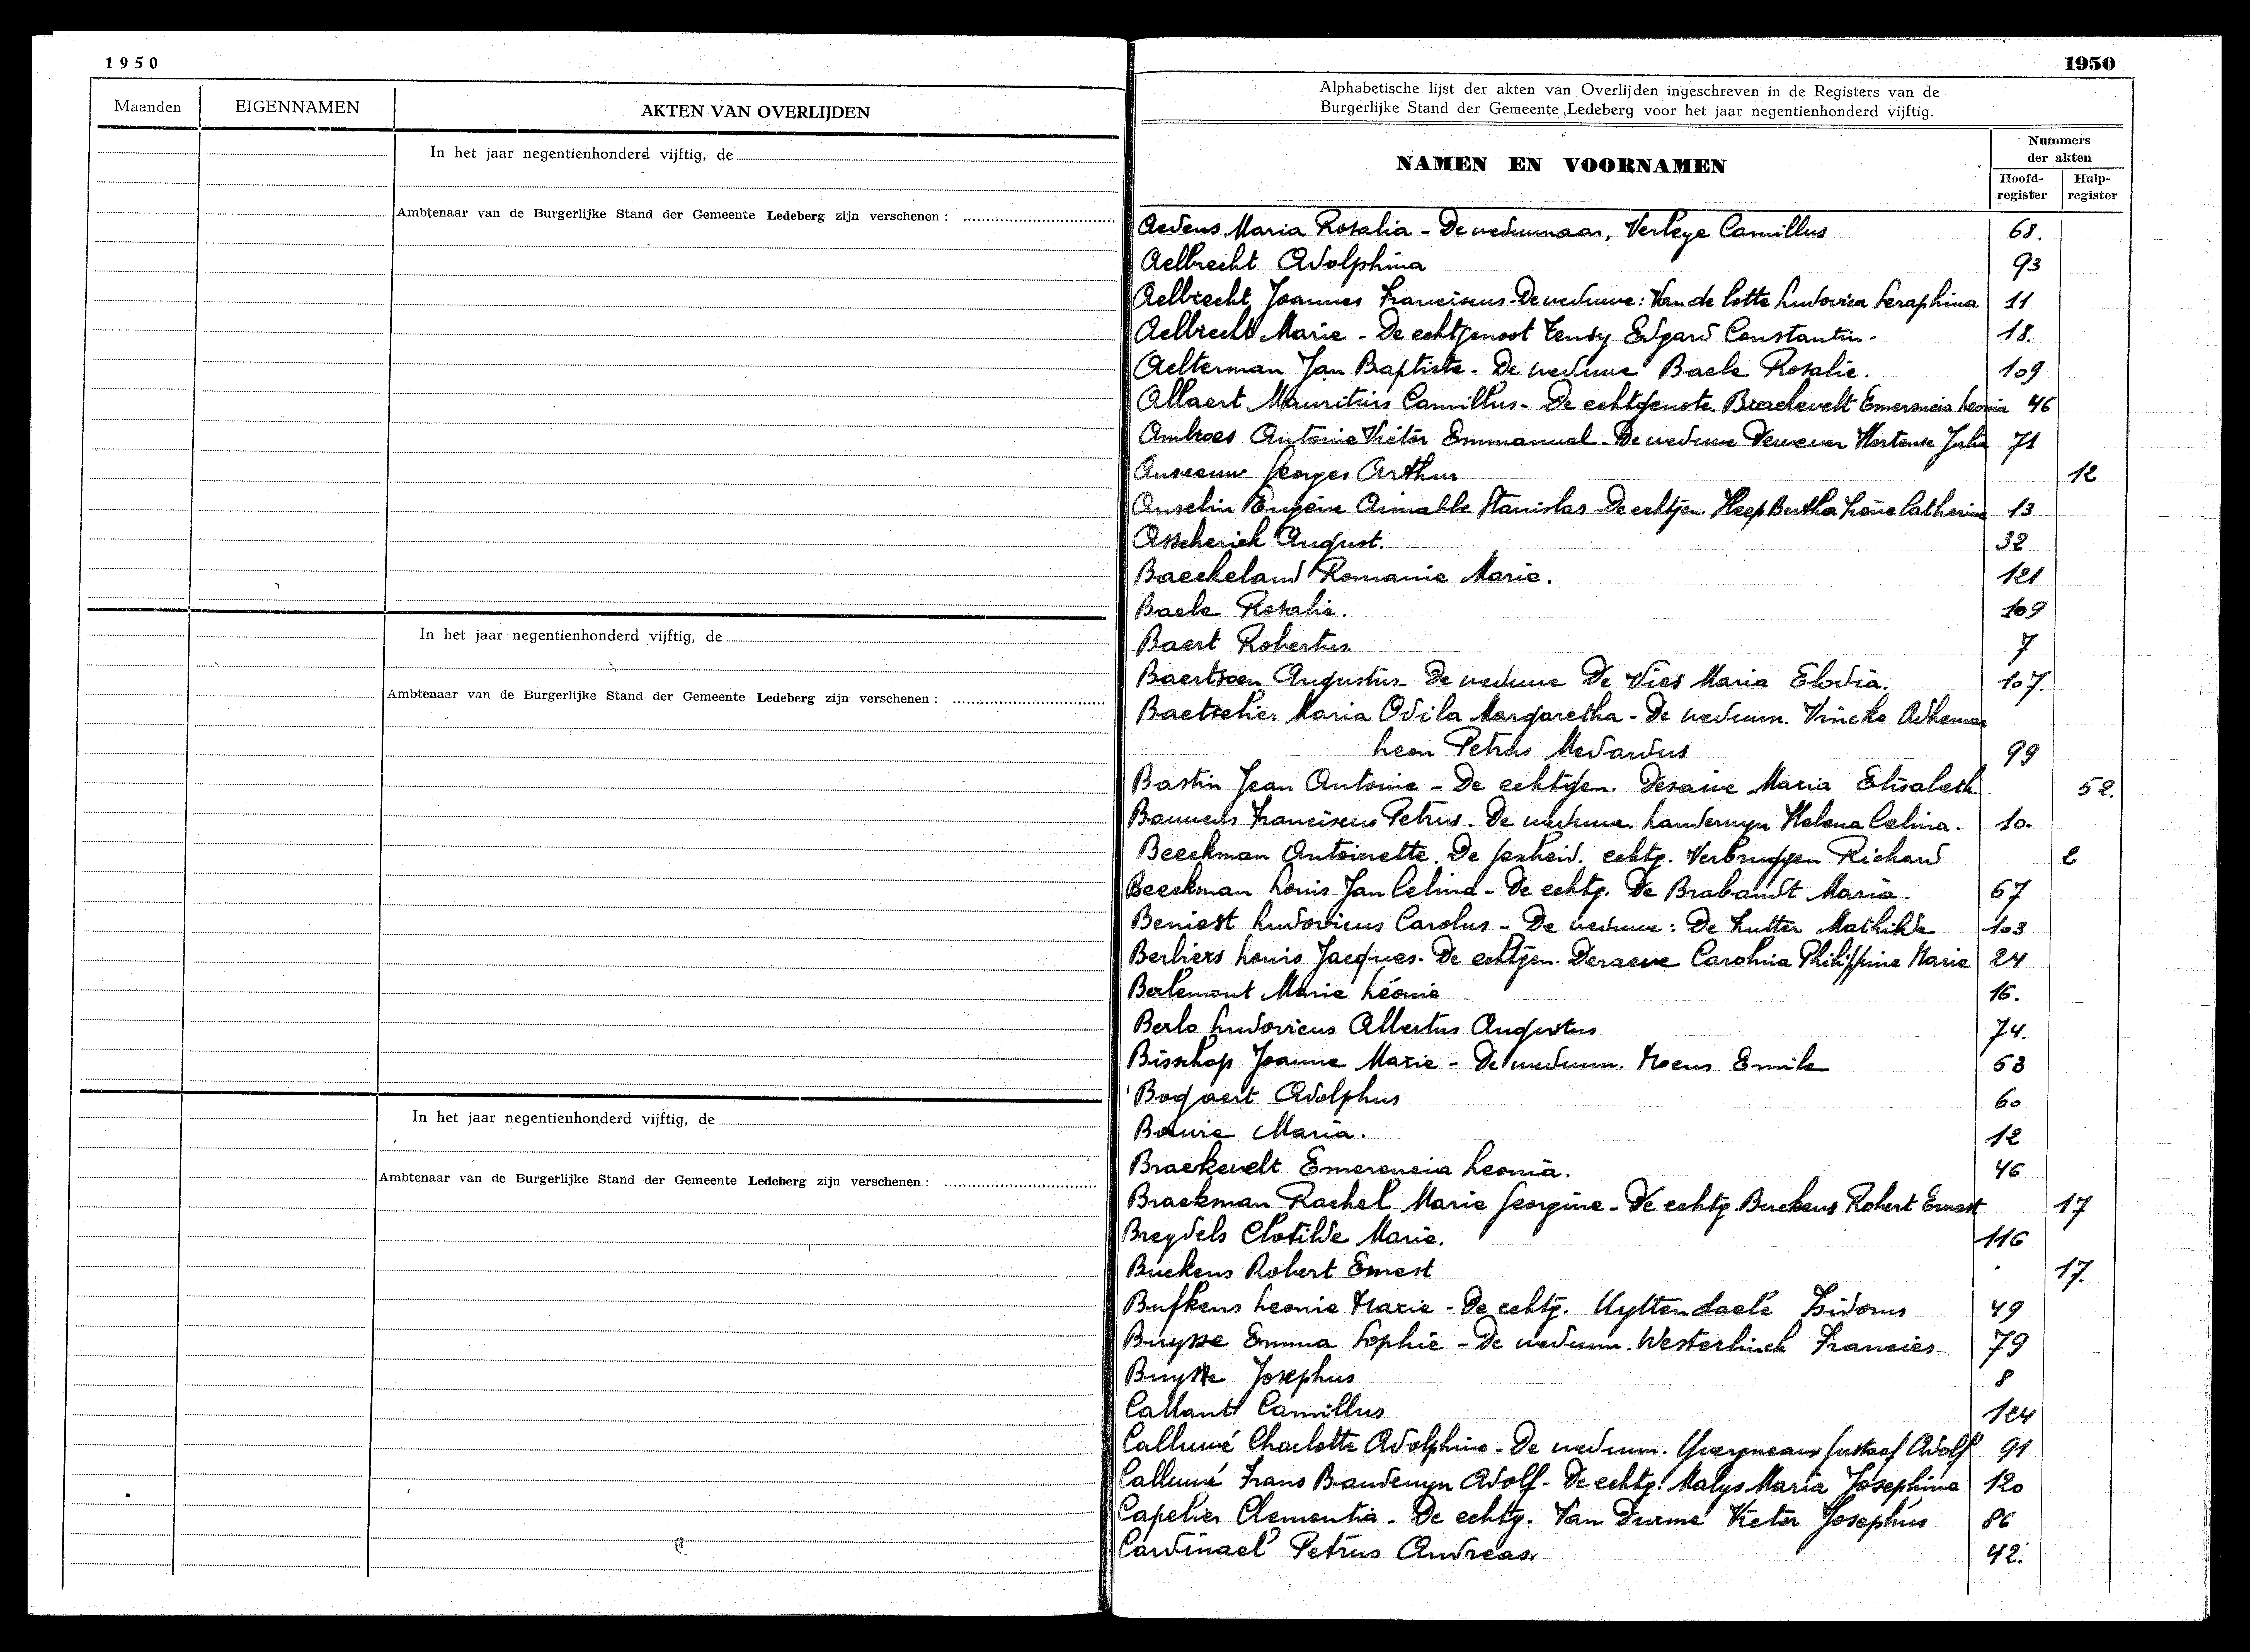 1950
Maanden
EIGENNAMEN
AKTEN VAN OVERLIJDEN
In het jaar negentienhonderd vijftig, de
Ambtenaar van de Burgerlijke Stand der Gemeente Ledeberg zijn verschenen :
In het jaar negentienhonderd vijftig, de
Ambtenaar van de Burgerlijke Stand der Gemeente Ledeberg zijn verschenen :
In het jaar negentienhonderd vijftig, de
Ambtenaar van de Burgerlijke Stand der Gemeente Ledeberg zijn verschenen :
1950
Alphabetische lijst der akten van Overlijden ingeschreven in de Registers van de
Burgerlijke Stand der Gemeente Ledeberg voor het jaar negentienhonderd vijftig.
NAMEN EN VOORNAMEN
Nummers
der akten
Hoofd-
register
Hulp-
register
Aedens Maria Rosalia - De weduwnaar, Verleye Camillus 68.
Aelbrecht Adolphina 93
Aelbrecht Joannes Franciscus - De weduwe: Van de Cotte Ludovica Seraphina 11
Aelbrecht Marie - De echtgenoot Tendy Edgard Constantin - 18.
Aelterman Jan Baptiste - De weduwe Baele Rosalie. 109
Allaert Mauritius Camillus - De echtgenote. Braekevelt Emerencia Leonia 46
Ambroes Antoine Victor Emmanuel - De weduwe Dewever Hortense Julie 71
Anseeuw Georges Arthur 12
Anselin Eugène Aimable Stanislas - De echtgen. Heep Bertha Irène Catherine 13
Asscherick August. 32
Baeckeland Romanie Marie. 121
Baele Rosalie. 109
Baert Robertus 7
Baertsoen Augustus - De weduwe De Vies Maria Elodia. 107.
Baetselier Maria Odila Margaretha - De weduwn. Vincke Adhemar
Leon Petrus Medardus 99
Bastin Jean Antoine - De echtgen. Desaive Maria Elisabeth. 52.
Bauwens Franciscus Petrus. De weduwe. Landuwyn Helena Celina. 10.
Beeckman Antoinette. De gescheid. echtg. Verbruggen Richard 2
Beeckman Louis Jan Celina - De echtg. De Brabandt Maria. 67
Beniest Ludovicus Carolus - De weduwe: De Kutter Mathilde 103
Berbiers Louis Jacques. De echtgen. Deraeve Carolina Philippine Marie 24
Berlemont Marie Léonie 16.
Berlo Ludovicus Albertus Augustus 74.
Bisschop Joanna Marie - De weduwn. Moens Emile 53
Bogaert Adolphus 60
Bouvie Maria. 12
Braekevelt Emerencia Leonia. 46
Braekman Rachel Marie Georgine - De echtg. Buekens Robert Ernest 17
Breydels Clotilde Marie. 116
Buekens Robert Ernest 17.
Bufkens Leonie Marie - De echtg. Uyttendaele Isidorus 49
Buysse Emma Sophie - De weduwn. Westerlinck Francies 79
Buysse Josephus 8
Callant Camillus 124
Calluwé Charlotte Adolphine - De weduwn. Yvergneaux Gustaaf Adolf 91
Calluwé Frans Baudewyn Adolf - De echtg. Malys Maria Josephine 120
Capelier Clementia - De echtg. Van Durme Victor Josephus 86
Cardinael Petrus Andreas 42.